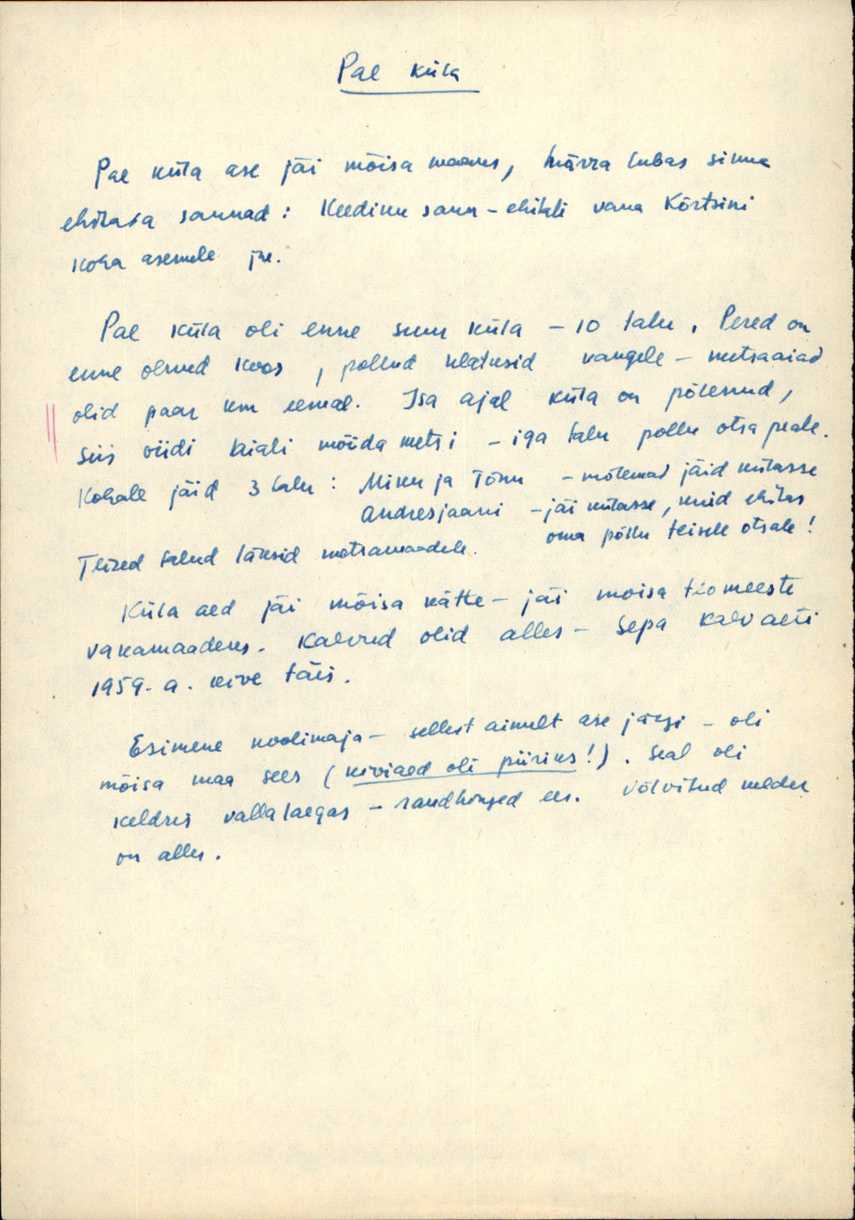 Pae küla
Pae küla ase jäi mõisa maaks, härra lubas sinna
ehitada saunad: Keedika saun – ehitati vana Kõrtsini
koha asemele jne.
Pae küla oli enne suur küla – 10 talu. Pered on
enne olnud koos, põllud ulatusid kaugele – metsaaiad
olid paar km eemal. Isa ajal küla on põlenud,
siis viidi laiali mööda metsi – iga talu põllu otsa peale.
Kohale jäid 3 talu: Mihu ja Tõnu – mõlemad jäid külasse
Andresjaani – jäi külasse, kuid ehitas
oma põllu teisele otsale!
Teised talud läksid metsamaadele.
Küla aed jäi mõisa kätte – jäi moisa teomeeste
vakamaadeks. Kaevud olid alles – Sepa kaev aeti
1959. a. kive täis.
Esimene koolimaja – sellest ainult ase järgi – oli
mõisa maa sees (kiviaed oli piiriks!). Seal oli
keldris vallalaegas – raudhinged ees. Võlvitud kelder
on alles.